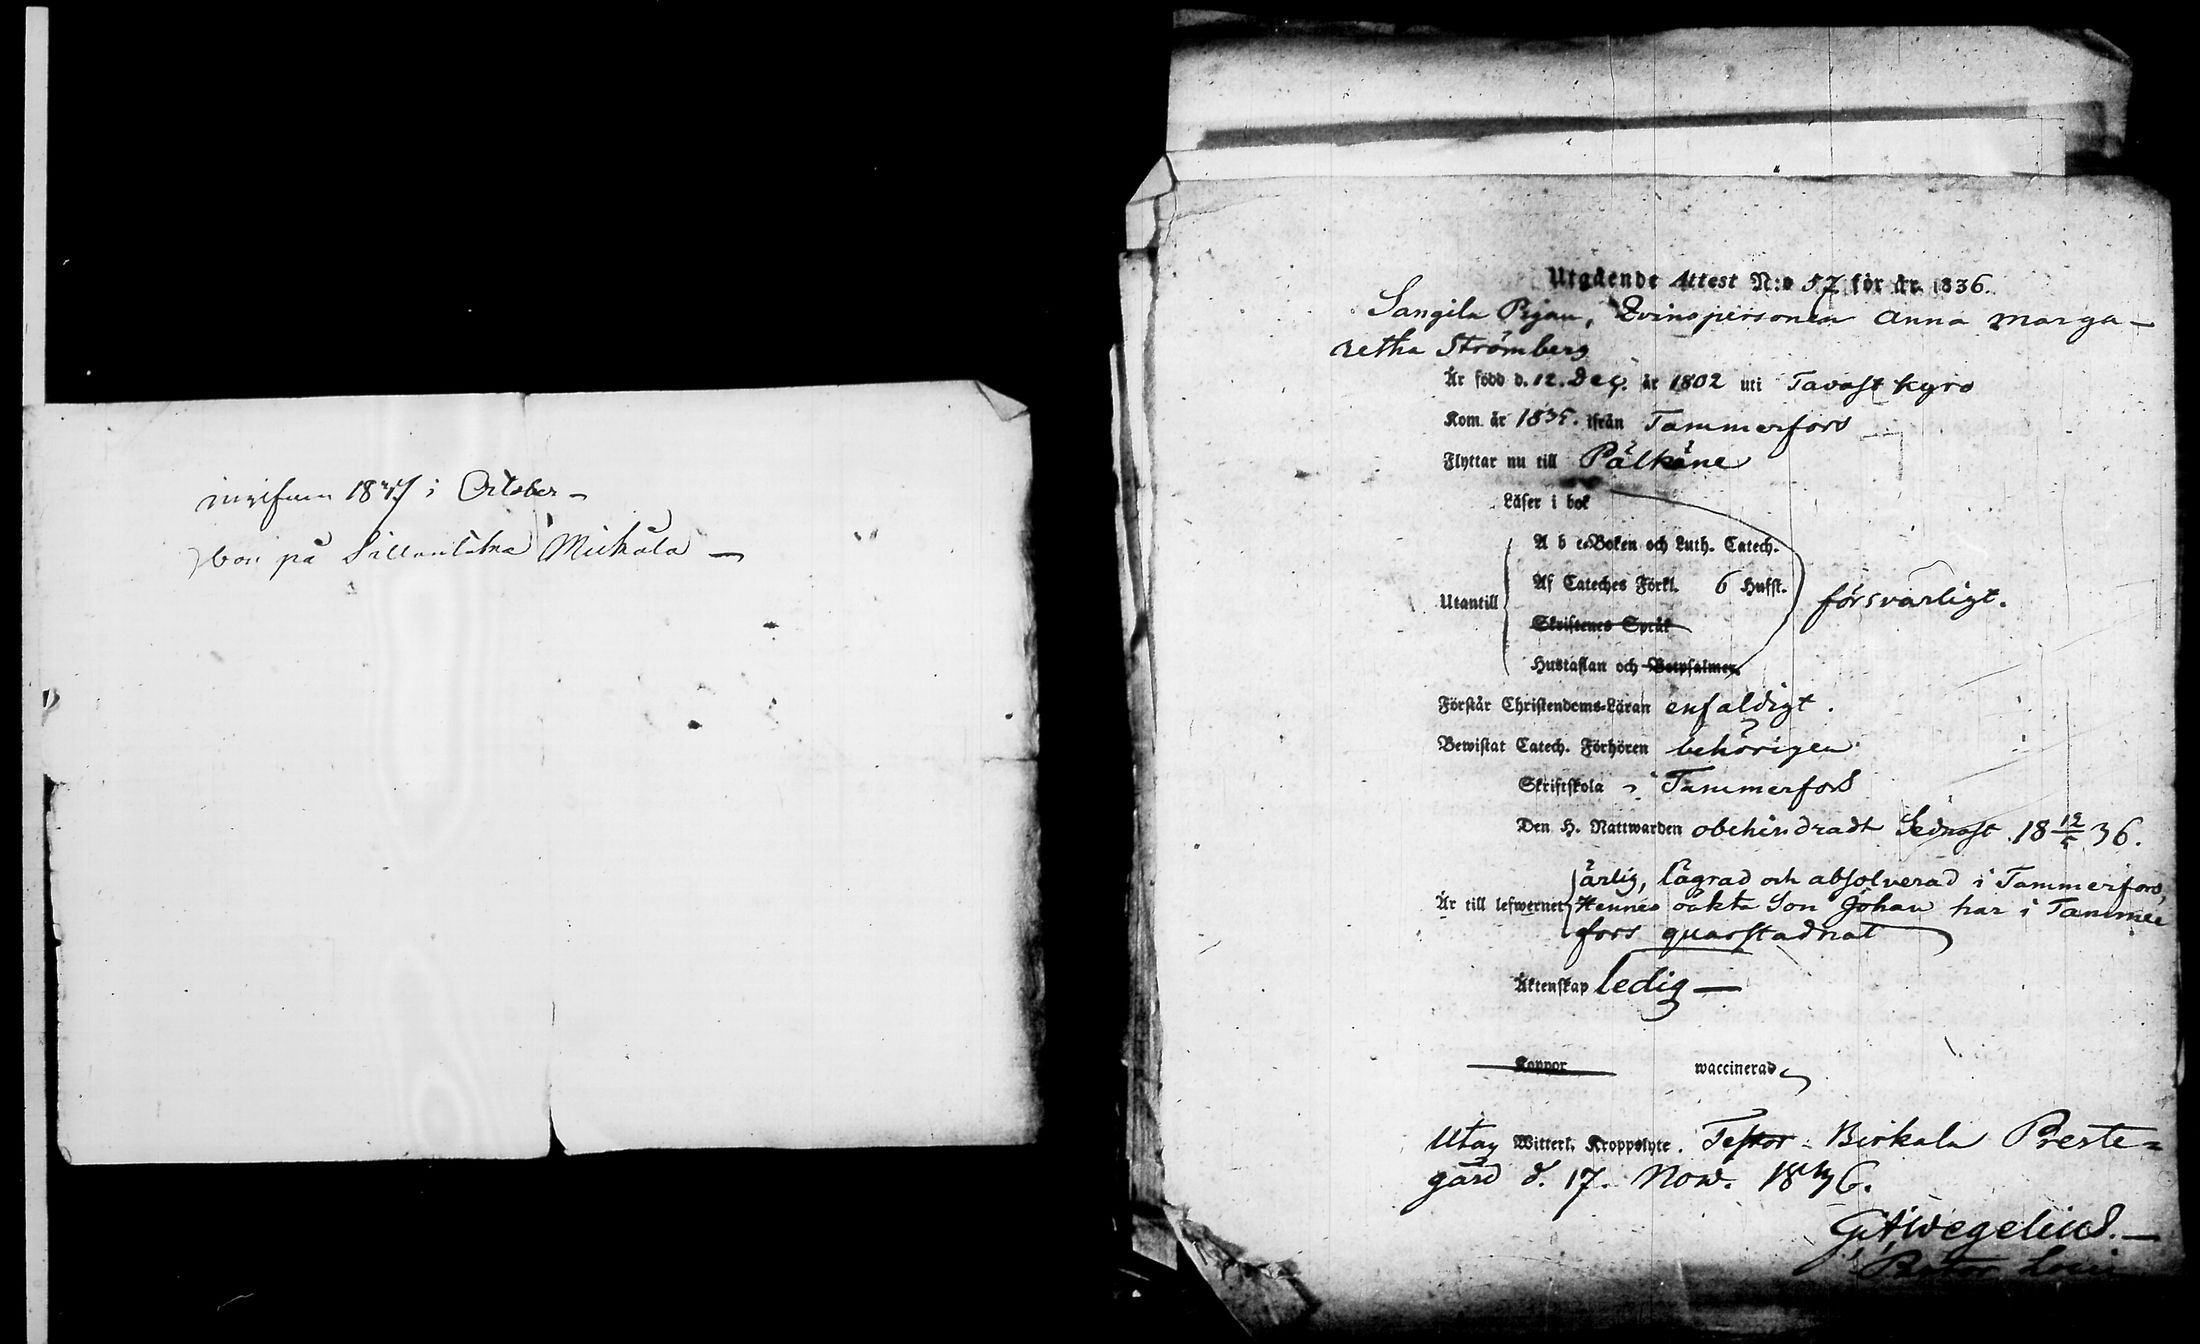 18 i October –
bor på Mickola —
Utgående Attest N:o 57 för år 1836.
Sangila Pigan, Qvinspersonen Anna Marga–
retha Strömberg
Är född d. 12. Dec. år 1802 uti Tavastkyro
Kom år 1835. ifrån Tammerfors
Flyttar nu till Pälkäne
Läser i bok
A b c-Boken och Luth. Catech.
Af Cateches Förkl. 6 Hufst.
Utantill
försvarligt.
Skriftenes Språk
Hustaflan och Botpsalmer.
Förstår Christendoms-Läran enfaldigt.
Bewistat Catech. Förhören behörigen
Skriftskola i Tammerfors
Den H. Nattwarden obehindradt Sednast 18 12/5 36.
ärlig, lägrad och absolverad i Tammerfors,
Är till lefwernet Hennes oäkta Son Johan har i Tammer
fors quarstadnat
Äktenskap ledig —
Koppor waccinerad
Utan Witterl. Kroppslyte. Birkala Preste=
gård d. 17. Nov. 1836.
G A Wegelius. —
Pastor Loci